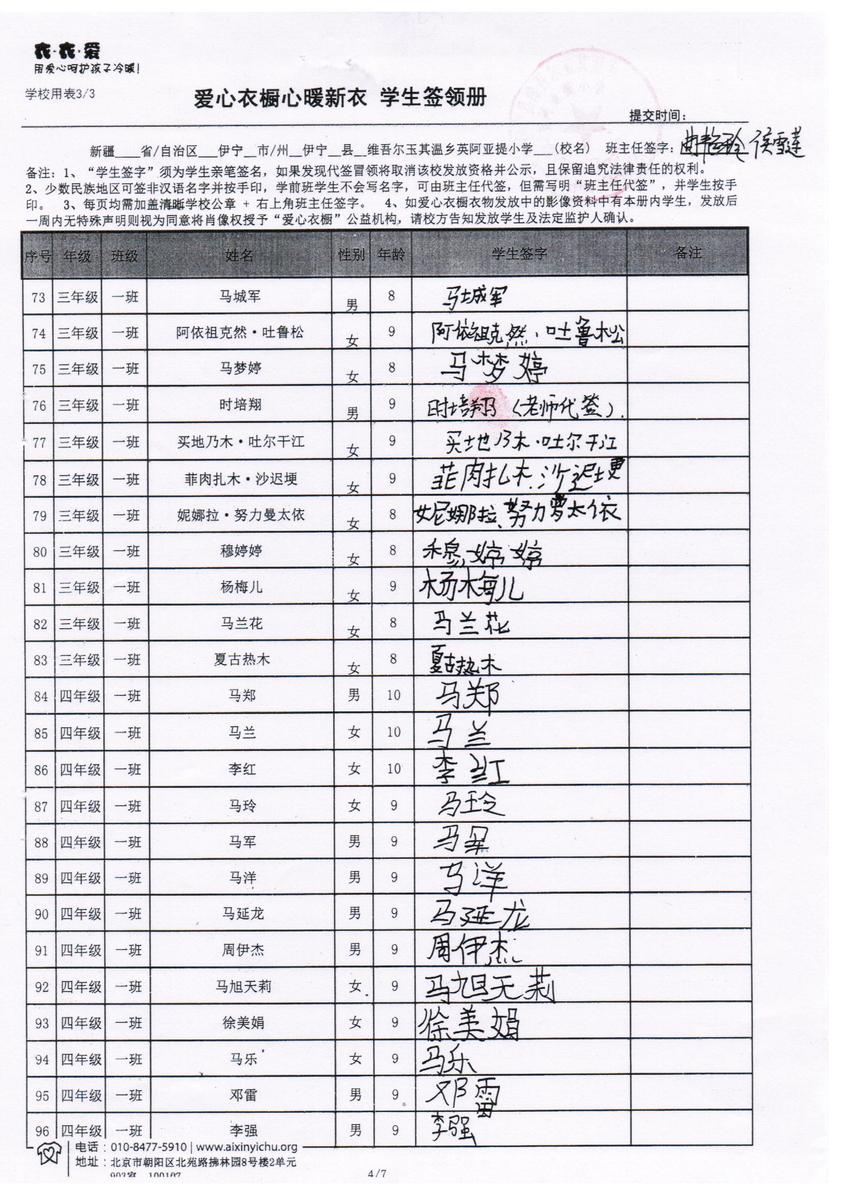 衣·衣·爱
用爱心呵护孩子冷暖!
学校用表3/3
爱心衣橱心暖新衣 学生签领册
提交时间:
新疆____省/自治区___伊宁__市/州__伊宁__县__维吾尔玉其温乡英阿亚提小学___(校名) 班主任签字: 侯雪莲
备注:1、“学生签字”须为学生亲笔签名,如果发现代签冒领将取消该校发放资格并公示,且保留追究法律责任的权利。
2、少数民族地区可签非汉语名字并按手印,学前班学生不会写名字,可由班主任代签,但需写明“班主任代签”,并学生按手
印。 3、每页均需加盖清晰学校公章 + 右上角班主任签字。 4、如爱心衣橱衣物发放中的影像资料中有本册内学生,发放后
一周内无特殊声明则视为同意将肖像权授予“爱心衣橱”公益机构,请校方告知发放学生及法定监护人确认。
序号 年级 班级 姓名 性别 年龄 学生签字 备注
73 三年级 一班 马城军 男 8 马城军
74 三年级 一班 阿依祖克然·吐鲁松 女 9 阿依祖克然·吐鲁松
75 三年级 一班 马梦婷 女 8 马梦婷
76 三年级 一班 时培翔 男 9 时培翔(老师代签).
77 三年级 一班 买地乃木·吐尔干江 女 9 买地乃木·吐尔干江
78 三年级 一班 菲肉扎木·沙迟埂 女 9 菲肉扎木.沙迟埂
79 三年级 一班 妮娜拉·努力曼太依 女 8 妮娜拉、努力曼太依
80 三年级 一班 穆婷婷 女 8 穆婷婷
81 三年级 一班 杨梅儿 女 9 杨梅儿
82 三年级 一班 马兰花 女 8 马兰花
83 三年级 一班 夏古热木 女 8 夏古热木
84 四年级 一班 马郑 男 10 马郑
85 四年级 一班 马兰 女 10 马兰
86 四年级 一班 李红 女 10 李红
87 四年级 一班 马玲 女 9 马玲
88 四年级 一班 马军 男 9 马军
89 四年级 一班 马洋 男 9 马洋
90 四年级 一班 马延龙 男 9 马延龙
91 四年级 一班 周伊杰 男 9 周伊杰
92 四年级 一班 马旭天莉 女 9 马旭天莉
93 四年级 一班 徐美娟 女 9 徐美娟
94 四年级 一班 马乐 女 9 马乐
95 四年级 一班 邓雷 男 9 邓雷
96 四年级 一班 李强 男 9 李强
电话:010-8477-5910 | www.aixinyichu.org
地址:北京市朝阳区北苑路拂林园8号楼2单元
903室 100107
4/7